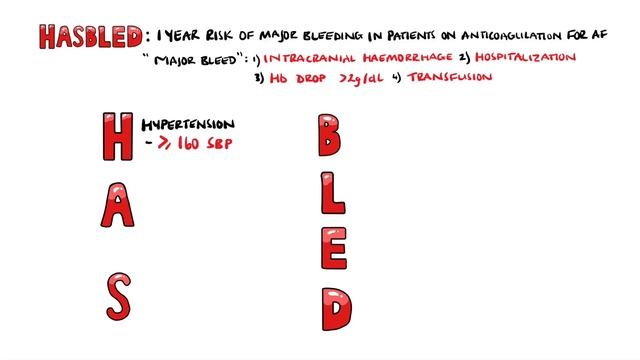 HASBLED: 1 YEAR RISK OF MAJOR BLEEDING IN PATIENTS ON ANTICOAGULATION FOR AF
"MAJOR BLEED": 1) INTRACRANIAL HAEMORRHAGE 2) HOSPITALIZATION
3) Hb DROP >2g/dL 4) TRANSFUSION
H HYPERTENSION
- ≥ 160 SBP
A
S
B
L
E
D